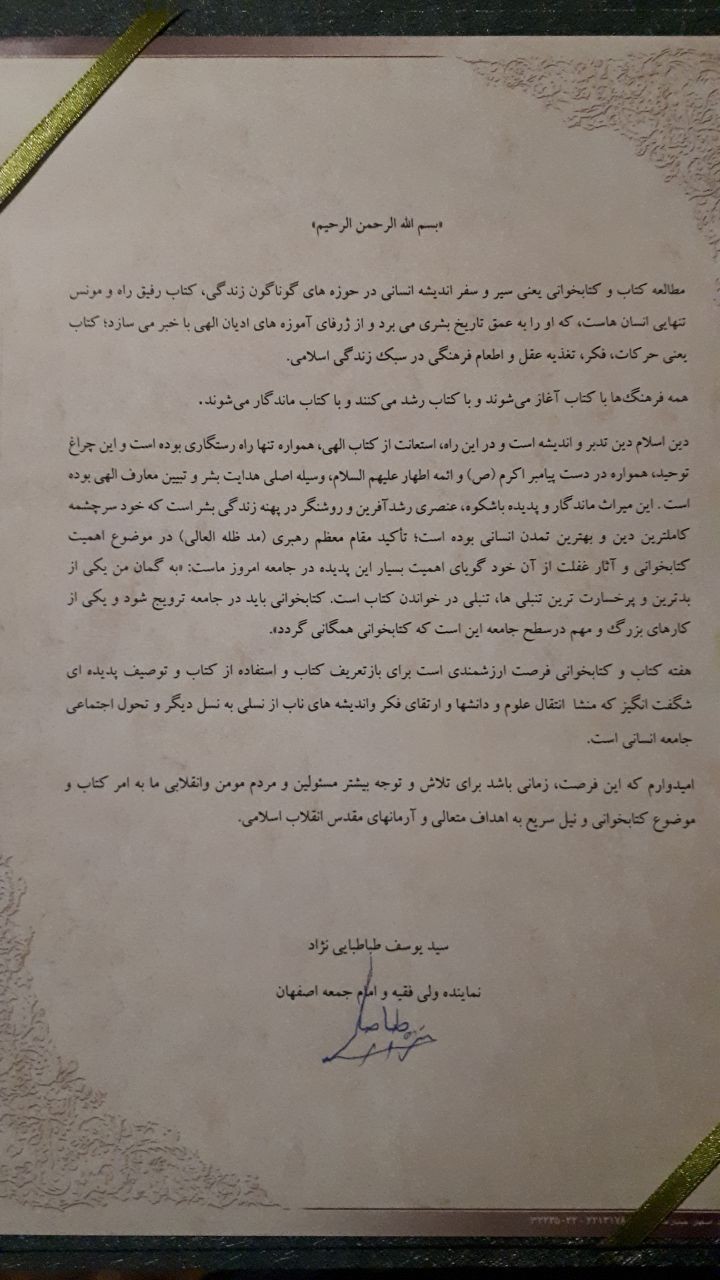 «بسم الله الرحمن الرحیم»
مطالعه کتاب و کتابخوانی یعنی سیر و سفر اندیشه انسانی در حوزه های گوناگون زندگی، کتاب رفیق راه و مونس
تنهایی انسان هاست، که او را به عمق تاریخ بشری می برد و از ژرفای آموزه های ادیان الهی با خبر می سازد؛ کتاب
یعنی حرکات، فکر، تغذیه عقل و اطعام فرهنگی در سبک زندگی اسلامی.
همه فرهنگ‌ها با کتاب آغاز می‌شوند و با کتاب رشد می‌کنند و با کتاب ماندگار می‌شوند.
دین اسلام دین تدبر و اندیشه است و در این راه، استعانت از کتاب الهی، همواره تنها راه رستگاری بوده است و این چراغ
توحید، همواره در دست پیامبر اکرم (ص) و ائمه اطهار علیهم السلام، وسیله اصلی هدایت بشر و تبیین معارف الهی بوده
است . این میراث ماندگار و پدیده باشکوه، عنصری رشدآفرین و روشنگر در پهنه زندگی بشر است که خود سرچشمه
کاملترین دین و بهترین تمدن انسانی بوده است؛ تأکید مقام معظم رهبری (مد ظله العالی) در موضوع اهمیت
کتابخوانی و آثار غفلت از آن خود گویای اهمیت بسیار این پدیده در جامعه امروز ماست: «به گمان من یکی از
بدترین و پرخسارت ترین تنبلی ها، تنبلی در خواندن کتاب است. کتابخوانی باید در جامعه ترویج شود و یکی از
کارهای بزرگ و مهم درسطح جامعه این است که کتابخوانی همگانی گردد».
هفته کتاب و کتابخوانی فرصت ارزشمندی است برای بازتعریف کتاب و استفاده از کتاب و توصیف پدیده ای
شگفت انگیز که منشا انتقال علوم و دانشها و ارتقای فکر واندیشه های ناب از نسلی به نسل دیگر و تحول اجتماعی
جامعه انسانی است.
امیدوارم که این فرصت، زمانی باشد برای تلاش و توجه بیشتر مسئولین و مردم مومن وانقلابی ما به امر کتاب و
موضوع کتابخوانی و نیل سریع به اهداف متعالی و آرمانهای مقدس انقلاب اسلامی.
سید یوسف طباطبایی نژاد
نماینده ولی فقیه و امام جمعه اصفهان